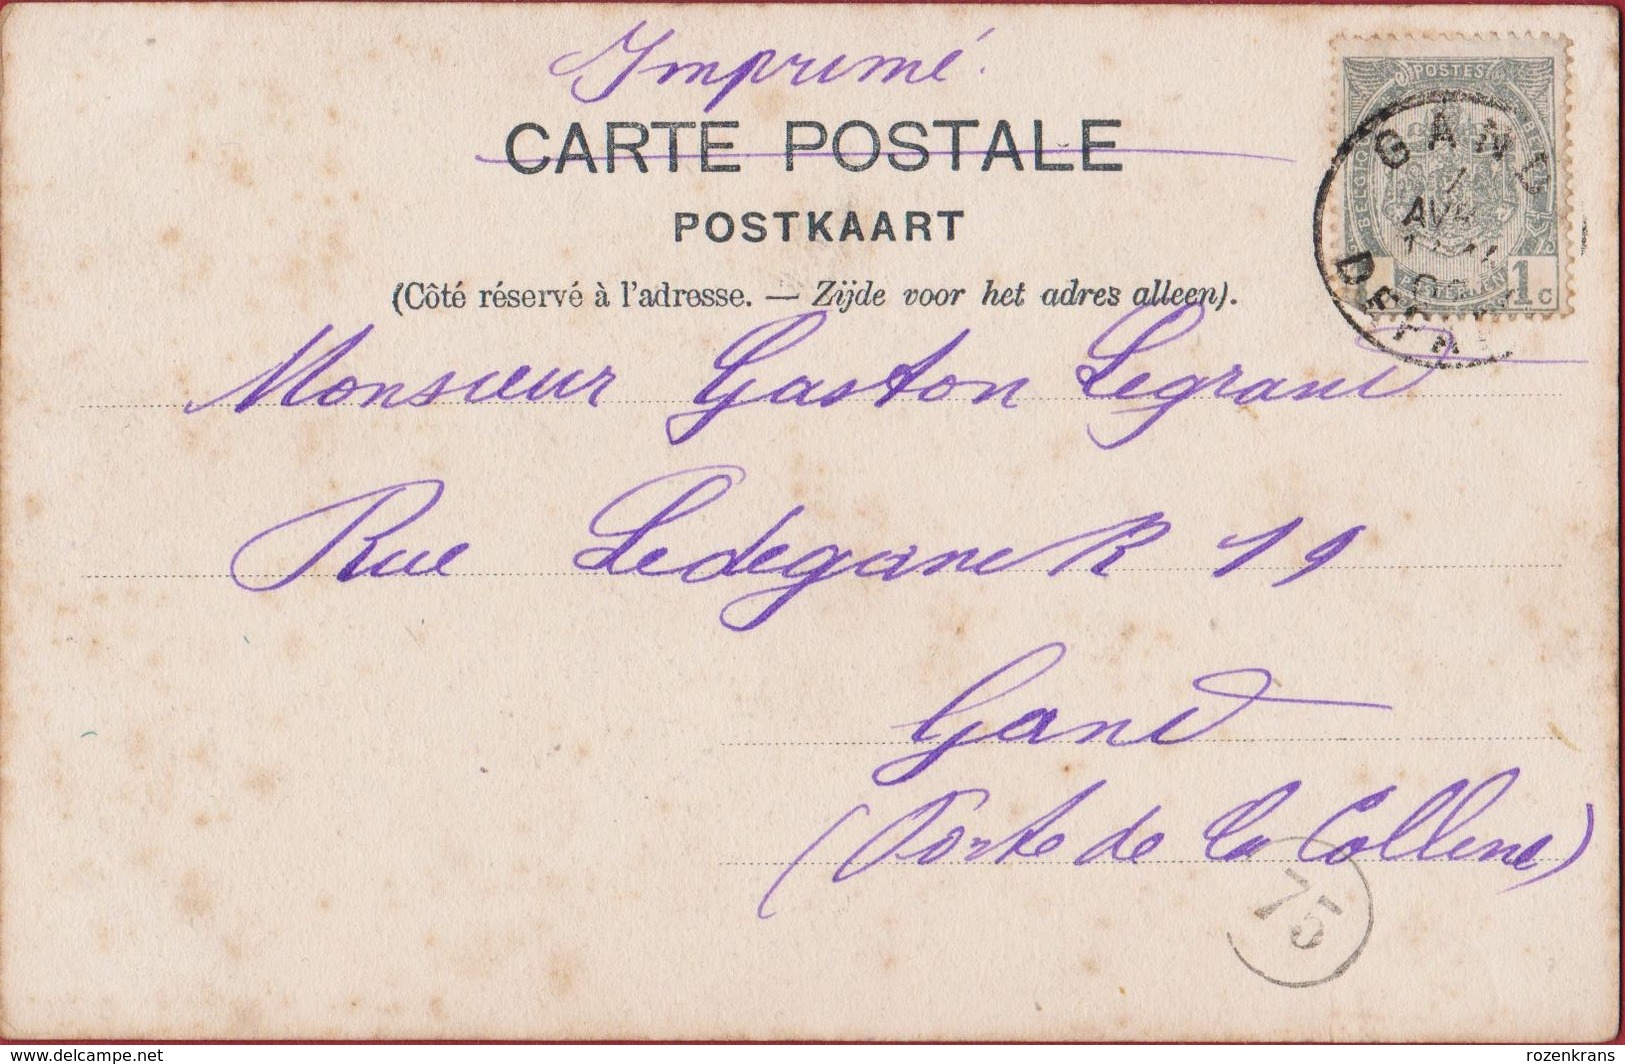 Imprimé.
CARTE POSTALE
POSTKAART
(Côté réservé à l'adresse. — Zijde voor het adres alleen).
POSTES
1c
GAND
7
AVR
Monsieur Gaston Legrand
Rue Ledeganck 19
Gand
(Porte de la Colline)
75
delcampe.net
rozenkrans